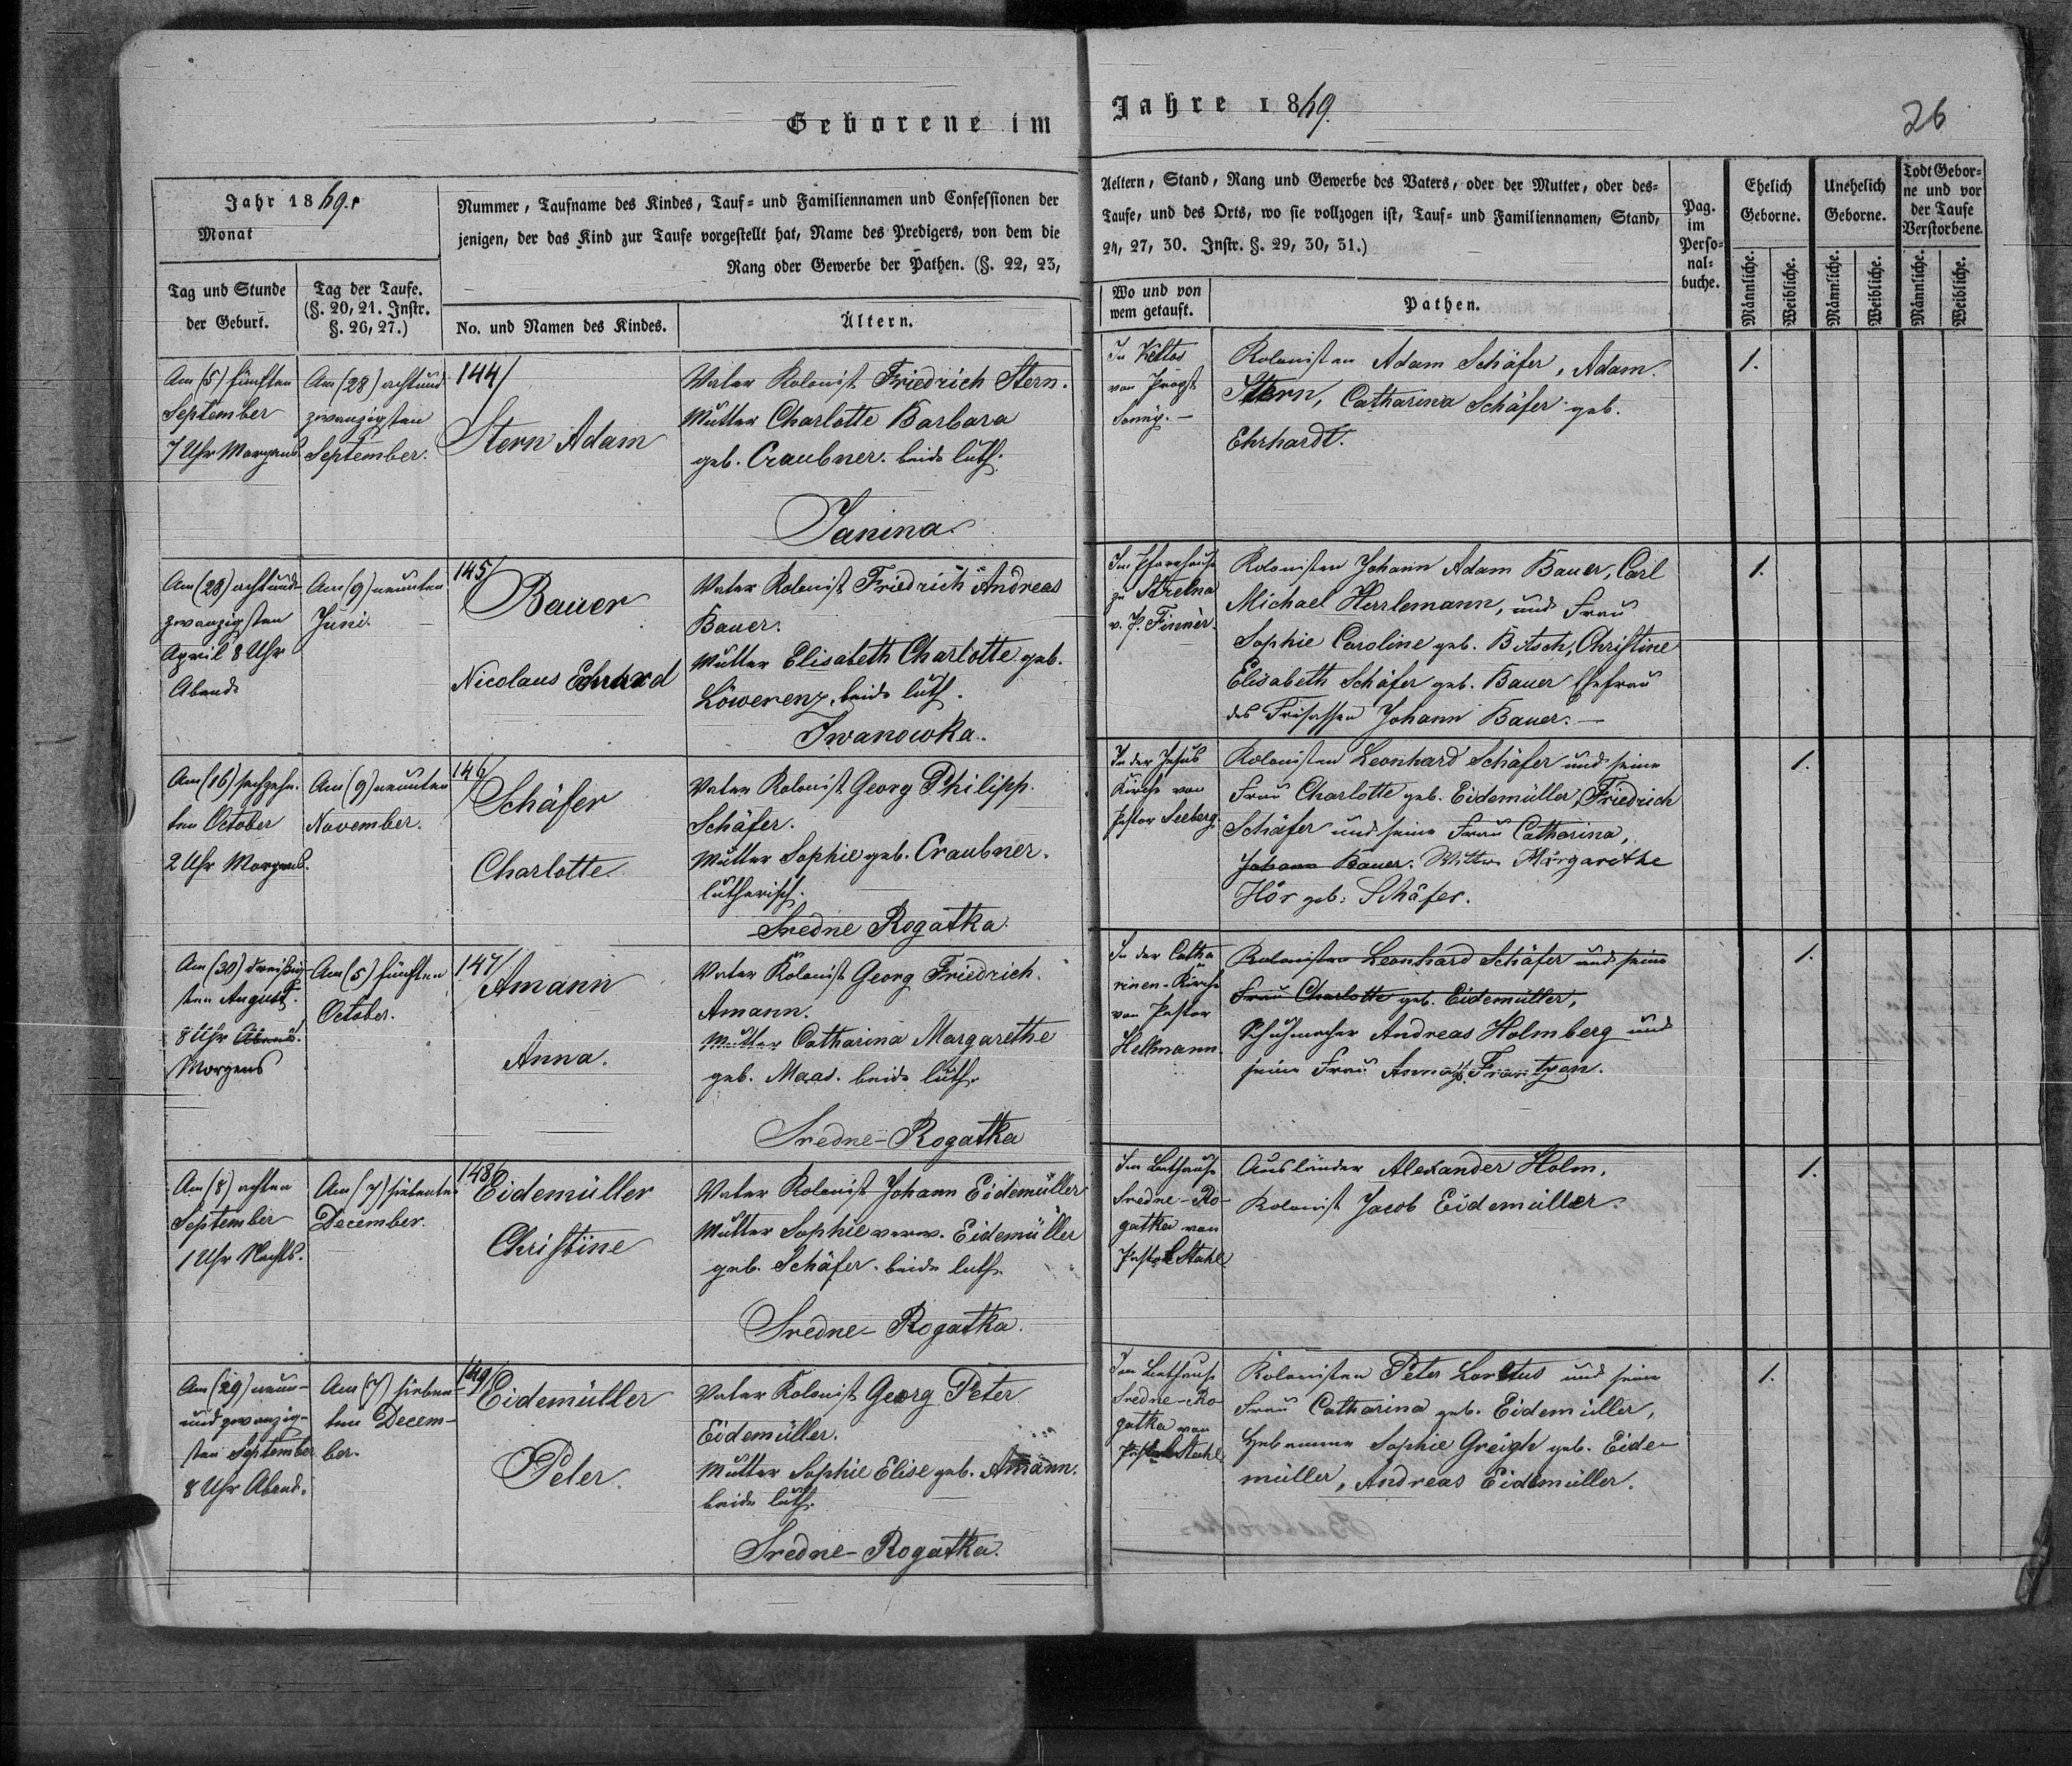 Geborene im
Jahre 1869.
26
Jahr 1869.
Monat
Tag und Stunde
der Geburt.
Tag der Taufe.
(§. 20, 21. Instr.
§. 26, 27.)
Nummer, Taufname des Kindes, Tauf- und Familiennamen und Confessionen der
jenigen, der das Kind zur Taufe vorgestellt hat, Name des Predigers, von dem die
Rang oder Gewerbe der Pathen. (§. 22, 23,
No. und Namen des Kindes.
Ältern.
Aeltern, Stand, Rang und Gewerbe des Vaters, oder der Mutter, oder des-
Taufe, und des Orts, wo sie vollzogen ist, Tauf- und Familiennamen, Stand,
24, 27, 30. Instr. §. 29, 30, 31.)
Wo und von
wem getauft.
Pathen.
Pag.
im
Perso-
nal-
buche.
Ehelich
Geborne.
Unehelich
Geborne.
Todt Gebor-
ne und vor
der Taufe
Verstorbene.
Männliche.
Weibliche.
Männliche.
Weibliche.
Männliche.
Weibliche.
Am (5) fünften
September
7 Uhr Morgens.
Am (28) achtund
zwanzigsten
September.
144/
Stern Adam
Vater Kolonist Friedrich Stern.
Mutter Charlotte Barbara
geb. Craubner. beide luth.
Janina.
In
von Probst
Kolonisten Adam Schäfer, Adam
Stern, Catharina Schäfer geb.
Ehrhardt.
1.
Am (28) achtund-
zwanzigsten
April 8 Uhr
Abends
Am (9) neunten
Juni.
145/
Bauer
Nicolaus
Vater Kolonist Friedrich Andreas
Bauer.
Mutter Elisabeth Charlotte geb.
Löwerenz, beide luth.
Iwanowka.
Im Pfarrhause
zu Strelna
v. P.
Kolonisten Johann Adam Bauer, Carl
Michael Herrlemann, und Frau
Sophie Caroline geb. Bitsch, Christine
Elisabeth Schäfer geb. Bauer Ehefrau
des Johann Bauer. —
1.
Am (16) sechzehn-
ten October
2 Uhr Morgens.
Am (9) neunten
November.
146/
Schäfer
Charlotte
Vater Kolonist Georg Philipp
Schäfer.
Mutter Sophie geb. Craubner.
lutherisch.
Sredne Rogatka.
In der Jesus
Kirche von
Pastor Seeberg.
Kolonisten Leonhard Schäfer und seine
Frau Charlotte geb. Eidemüller, Friedrich
Schäfer und seine Frau Catharina,
Johann Bauer. Wittwe Margarethe
Hör geb. Schäfer.
1.
Am (30) dreißig-
sten August.
8 Uhr Abends.
Morgens
Am (5) fünften
October.
147/
Amann
Anna.
Vater Kolonist Georg Friedrich
Amann.
Mutter Catharina Margarethe
geb. Maas. beide luth.
Sredne-Rogatka
In der Catha
rinen-Kirche
von Pastor
Hellmann.
Kolonisten Leonhard Schäfer und seine
Frau Charlotte geb. Eidemüller,
Schuhmacher Andreas Holmberg und
seine Frau Anna gb. Frantzen.
1.
Am (8) achten
September
1 Uhr Nachts.
Am (7) siebenten
December.
148/
Eidemüller
Christine
Vater Kolonist Johann Eidemüller
Mutter Sophie verw. Eidemüller
geb. Schäfer. beide luth.
Sredne-Rogatka.
Im Bethause
Sredne-Ro-
gatka von
Pastor Stahl
Ausländer Alexander Holm,
Kolonist Jacob Eidemüller.
1.
Am (29) neun-
undzwanzig-
sten September
8 Uhr Abends.
Am (7) sieben-
ten Decem-
ber.
149/
Eidemüller
Peter.
Vater Kolonist Georg Peter
Eidemüller.
Mutter Sophie Elise geb. Amann.
beide luth.
Sredne-Rogatka.
Im Bethause
Sredne-Ro-
gatka von
Pastor Stahl
Kolonisten Peter und seine
Frau Catharina geb. Eidemüller,
Hebamme Sophie Greigh geb. Eide-
müller, Andreas Eidemüller.
1.